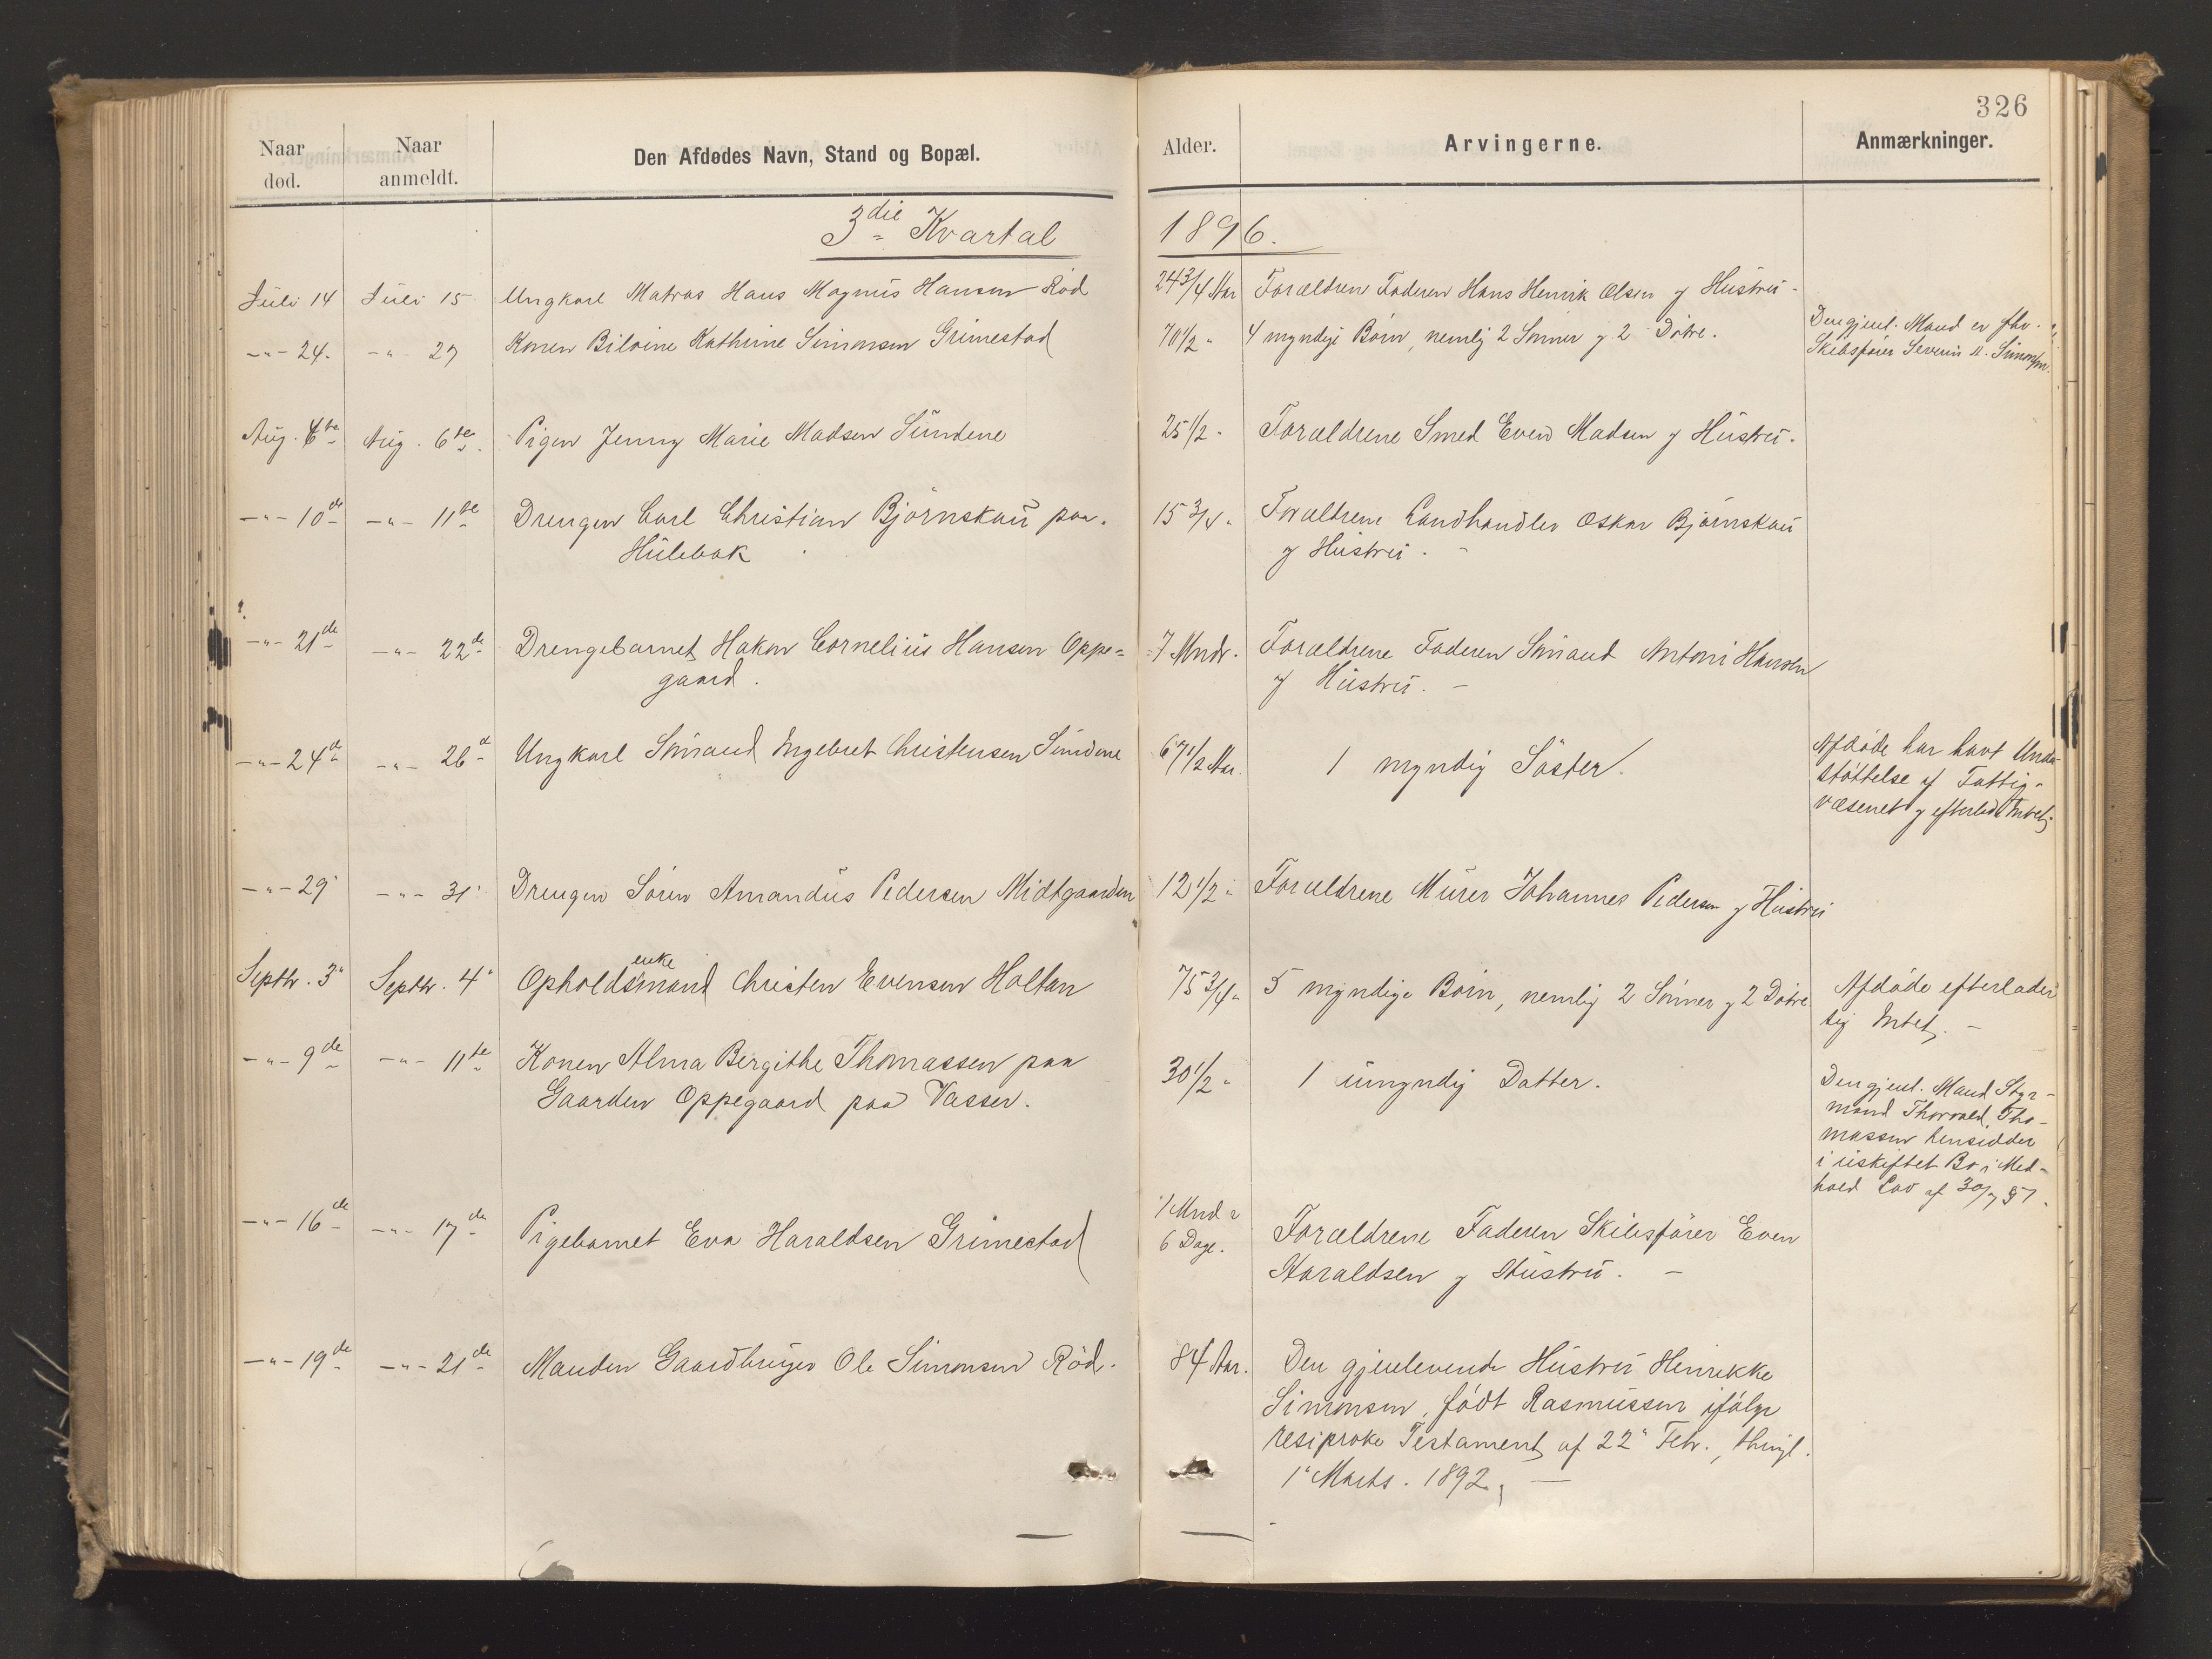 326
Naar død. Naar anmeldt. Den Afdødes Navn, Stand og Bopæl. Alder. Arvingerne. Anmærkninger.
3die Kvartal 1896.
Juli 14 Juli 15 Ungkarl Matros Hans Magnus Hansen Röd 24 3/4 Aar Forældrene Faderen Hans Henrik Olsen og Hustru.
-"- 24. -"- 27 Konen Kathrine Simonsen Grimestad 70 1/2 " 4 myndige Börn, nemlig 2 Sönner og 2 Döttre. Den gjenl. Mand er fhv.
Skibsförer Severin Simonsen.
Aug. 4de Aug. 6te Pigen Jenny Marie Madsen Sundene 25 1/2 " Forældrene Smed Even Madsen og Hustru.
-"- 10de -"- 11te Drengen Carl Christian Björnskau paa 15 3/4 " Forældrene Landhandler Oskar Björnskau
Hulebak og Hustru.
-"- 21de -"- 22de Drengebarnet Hakon Cornelius Hansen Oppe= 7 Mndr. Forældrene Faderen Sömand Antoni Hansen
gaard. og Hustru. -
-"- 24de -"- 26de Ungkarl Sömand Engebret Christensen Sundene 67 1/2 Aar. 1 myndig Söster. Afdöde har havt Under-
støttelse af Fattig-
væsenet og efterlod Intet.
-"- 29" -"- 31" Drengen Sören Amandus Pedersen Midtgaarden 12 1/2 " Forældrene Murer Johannes Pedersen og Hustru
Septbr. 3" Septbr. 4" Opholdsmand enke Christen Evensen Holtan 75 3/4 " 5 myndige Börn, nemlig 2 Sönner og 2 Döttre Afdöde efterlader
sig Intet. -
-"- 9de -"- 11te Konen Alma Bergithe Thomassen paa 30 1/2 " 1 umyndig Datter. Den gjenl. Mand Styr-
Gaarden Oppegaard paa Vasser. mand Thorvald Tho-
massen hensidder
i uskiftet Bo i Med-
hold Lov af 30/7 51.
-"- 16de -"- 17de Pigebarnet Eva Haraldsen Grimestad 1 Mnd
6 Dage. Forældrene Faderen Skibsförer Even
Haraldsen og Hustru. -
-"- 19de -"- 21de Manden Gaardbruger Ole Simonsen Röd. 84 Aar. Den gjenlevende Hustru Henrikke
Simonsen, födt Rasmussen ifölge
resiproke Testament af 22" Febr., thingl.
1" Marts. 1892, -